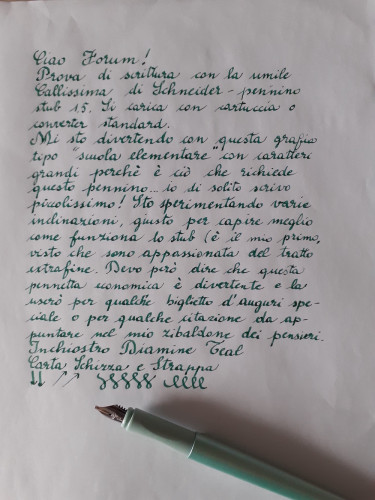 Ciao Forum!
Prova di scrittura con la umile
Callissima di Schneider - pennino
stub 1.5. Si carica con cartuccia o
converter standard.
Mi sto divertendo con questa grafia
tipo "scuola elementare" con caratteri
grandi perchè è ciò che richiede
questo pennino... io di solito scrivo
piccolissimo! Sto sperimentando varie
inclinazioni, giusto per capire meglio
come funziona lo stub (è il mio primo,
visto che sono appassionata del tratto
extrafine. Devo però dire che questa
pennetta economica è divertente e la
userò per qualche biglietto d'auguri spe-
ciale o per qualche citazione da ap-
puntare nel mio zibaldone dei pensieri.
Inchiostro Diamine Teal
Carta Schizza e Strappa